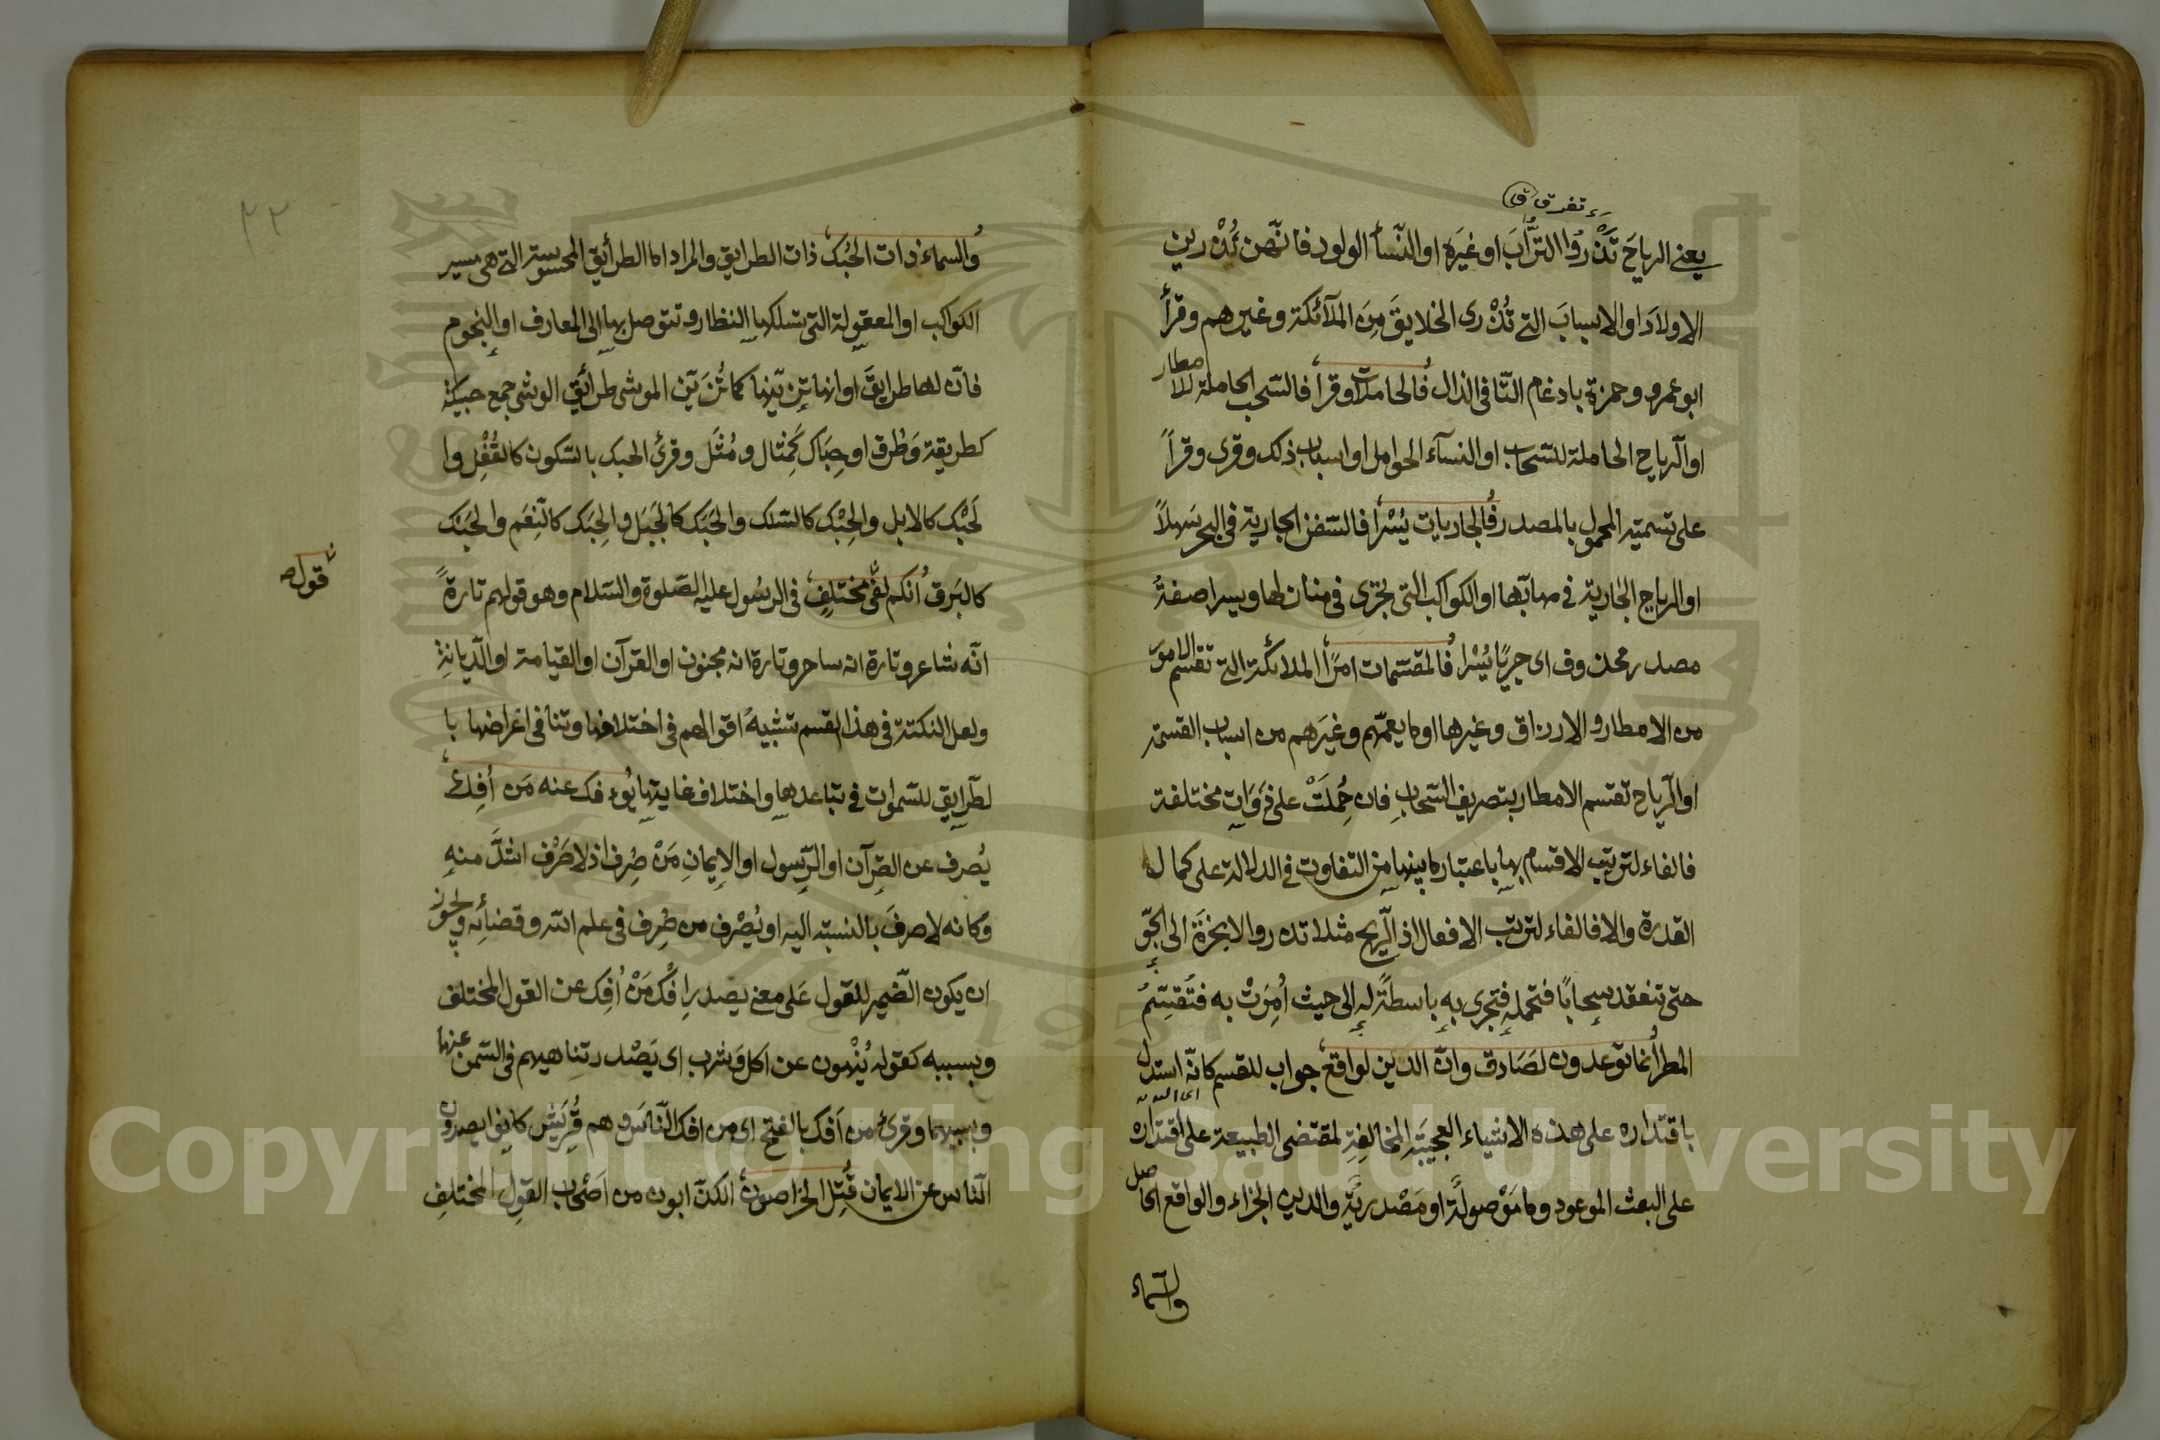 تفرق ق
يعنى الرياح تَذْرُوا التُّرابَ او غيرَه او النّسآ الولود فانّهن يُذْرين
الاولادَ او الاسبابَ التى تُذْرى الخلايقَ مِنَ الملآئكة وغيرهم وقرأ
ابو عمرو وحمزة بادغام التّا فى الذال فالحاملات وقرا فالسّحب الحاملة للامطار
او الرياح الحاملة للسّحاب او النسآء الحوامل او اسباب ذلك وقرى وقراً
على تسمية المحمول بالمصدر فالجاريات يُسْرًا فالسّفن الجارية فى البحر سَهلاً
او الرياح الجارية فى مهابّها او الكواكب التى تجرى فى منازلها ويسرا صفةُ
مصدر محذوف اى جريًا يُسْرا فالمقسّمات امرًا الملائكة التى تقسم الامورَ
من الامطار والارزاق وغيرها او ما يعمّهم وغيرَهم من اسباب القسمة
او الرّياح تقسم الامطار بتصريف السّحاب فان حُمِلَتْ على ذَوَاتٍ مختلفة
فالفاء لترتيب الاقسام بها باعتبار ما بينها من التفاوت فى الدلالة على كمال
القدرة والا فالفاء لترتب الافعال اذ الرّيح مثلا تذرو الابخرَةَ الى الجّو
حتى تنعقد سحابًا فتحمله فتجرى به باسطةً له الى حيث اُمِرَتْ به فتُقسِّمُ
المطر اُنما توعدون لصَادق وانّ الدين لواقع جواب للقسم كانّه استدل
اى الله
باقتداره على هذه الاشياء العجيبَة المخالفِة لمقتضى الطبيعة على اقتداره
على البعث الموعود وما مَوْصولةً او مَصْدريّة والدين الجزاء والواقع الحاصل
والسّماء
٢٢
والسماء ذات الحُبُك ذات الطرايق والمراد اما الطرأيق المحسوسة التى هى مسير
الكواكب او المعقولة التى يسلكها النظار وتتوصل بها الى المعارف او النجوم
فانّ لها طرايقَ او انها تزيّنها كما تُزَيّن الموشى طرأيق الوشى جمع حبيكة
كطريقة وطُرق او حِبَاك كَمِثال ومُثل وقرئ الحبك بالسّكون كالقُفْل وا
لَحبْك كالابل والحِبْك كالسّلك والحَبَك كالجَبَل والحِبَك كالنِعَم والحُبَك
كالبَرق اُنكم لفى مختلفٍ فى الرسُول عليه الصّلوة والسّلام وهو قولهم تارةً
قول صح
انّه شاعر وتارة انه ساحر وتارة انه مجنون او القرآن او القيامة او الدّيانة
ولعل النكتة فى هذا القسم تشبيهُ اقوالهم فى اختلافها وتنافى اغراضها با
لطرايق للسّموات فى تباعدها واختلاف غاياتها يُوءفك عنه مَن اُفِكَ
يُصرف عن القرآن او الرّسول او الايمانِ مَنْ صُرِف اذ لا صَرْف اشدَّ منه
وكانه لا صرفَ بالنسبة اليه او يُصْرف من صُرِف فى علم الله وقضآئه ويجوز
ان يكون الضّمير للقول عَلى معنى يصدر افكُ مَنْ اُفِك عن القول المختلف
وبسببه كقوله يُنْهون عن اكل وَشرب اى يَصْدر تناهيهم فى السّمن عنها
وبسببها وقرئ من اَفك بالفتح اى من افك النّاسَ وهم قُرَيش كانوا يصدّون
النّاس عن الايمان قُتِل الخرّاصون الكذّابون من اَصْحاب القول المختلفِ